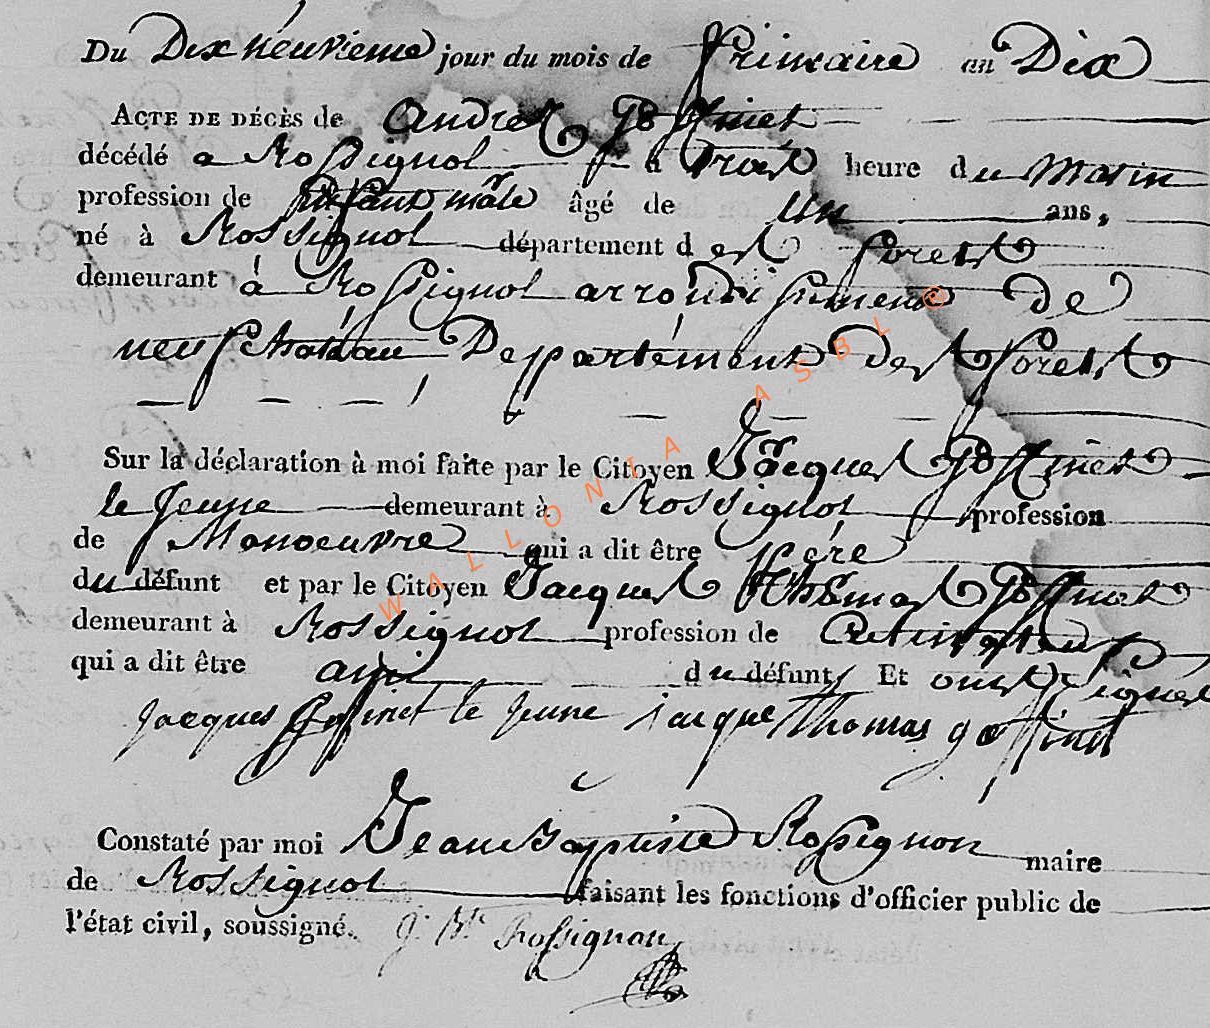 Du Dix neuvieme jour du mois de frimaire an Dix
ACTE DE DÉCÈS de Andres Goffinet
décédé a Rossignol a trois heure du matin
profession de Enfant mâle âgé de un ans,
né à Rossignol département des forets
demeurant à Rossignol arrondissement de
neufchateau Departement des forets
Sur la déclaration à moi faite par le Citoyen Jacques Goffinet
le Jeune demeurant à Rossignol profession
de Manoeuvre qui a dit être père
du défunt et par le Citoyen Jacques Thomas Goffinet
demeurant à Rossignol profession de
qui a dit être ami du défunt Et ont signés
jacques Goffinet le jeune jacque thomas goffinet
Constaté par moi Jean Baptiste Rossignon maire
de Rossignol faisant les fonctions d'officier public de
l'état civil, soussigné. J. Bte Rossignon
WALLONIA ASBL ©